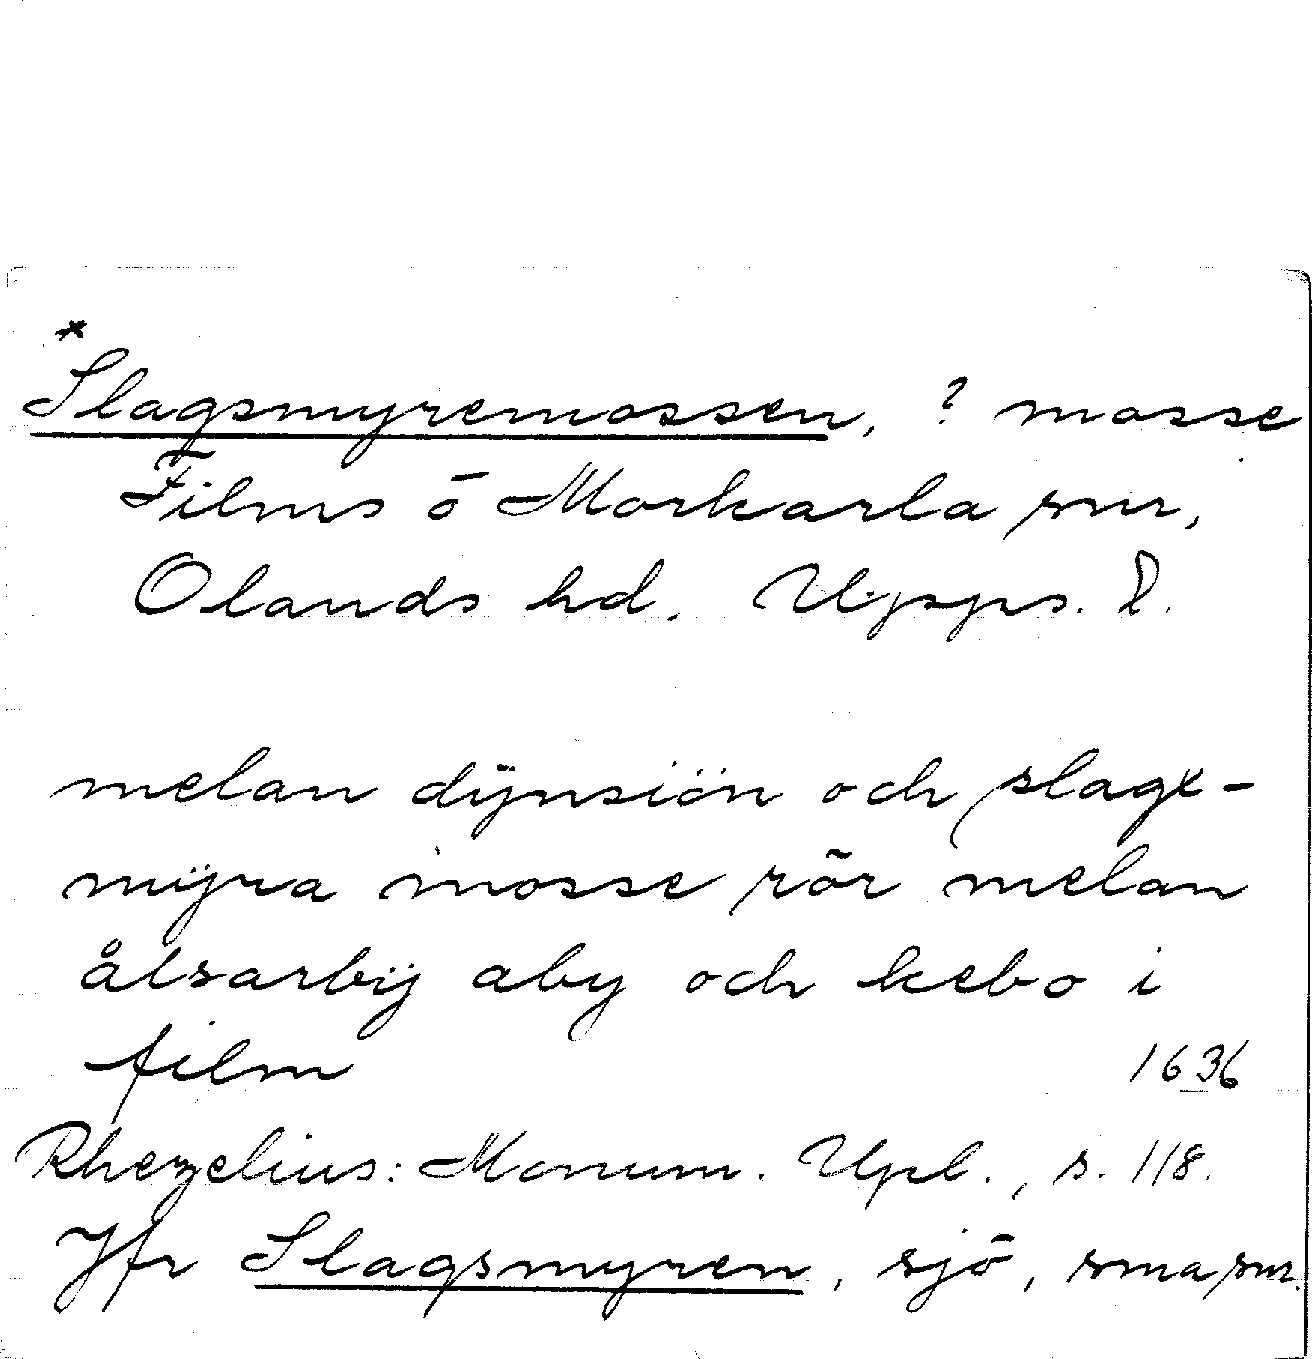 *
Slagsmyremossen, ? mosse
Films ö Morkarla snr,
Olands hd. Upps. l.
melan dÿnsiön och slagx-
mÿra mosse rör melan
ålsarbÿ aby och kebo i
film 1636
Rhezelius: Monum. Upl., s. 118.
Jfr Slagsmyren, sjö, sma snr.